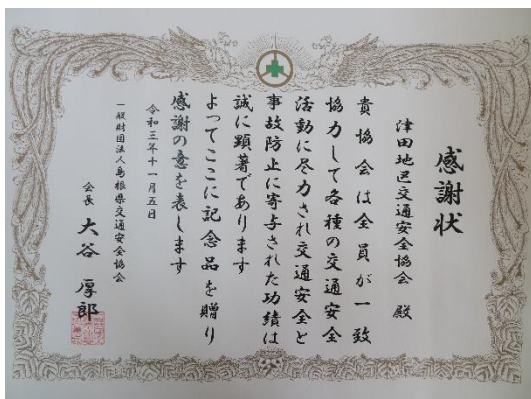 感謝状
津田地区交通安全協会 殿
貴協会は全員が一致
協力して各種の交通安全
活動に尽力され交通安全と
事故防止に寄与された功績は
誠に顕著であります
よってここに記念品を贈り
感謝の意を表します
令和三年十一月五日
一般財団法人島根県交通安全協会
会長 大谷厚郎